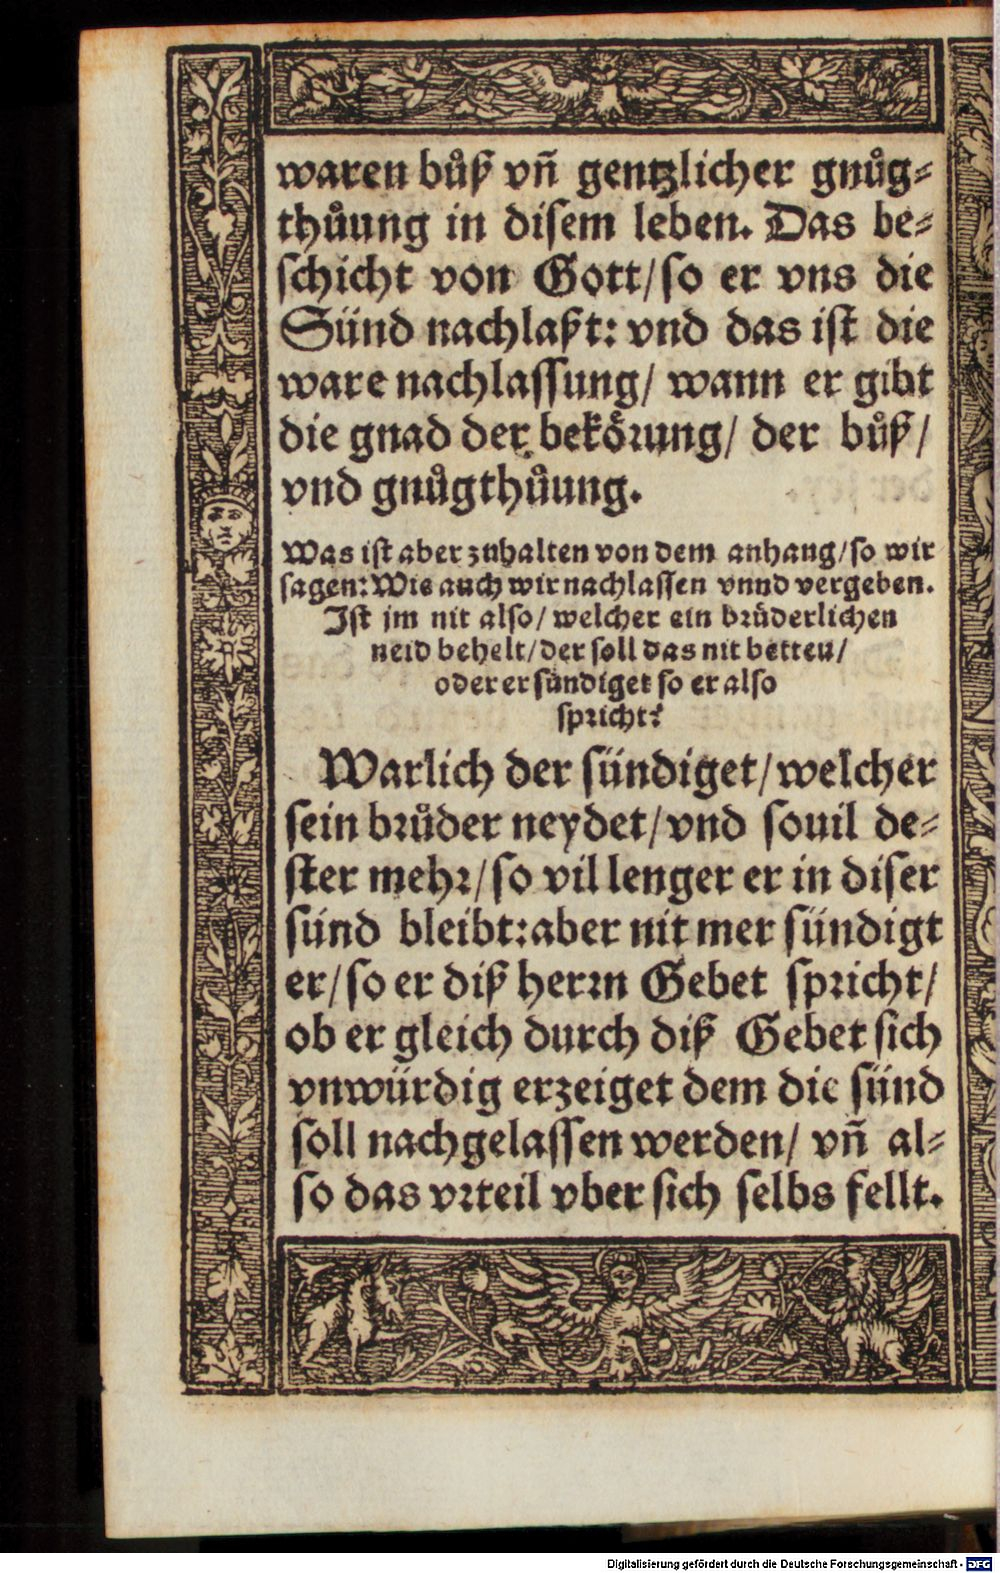 waren bůß vñ gentzlicher gnůg⸗
thůung in disem leben. Das be⸗
schicht von Gott/so er vns die
Sünd nachlaßt: vnd das ist die
ware nachlassung/ wann er gibt
die gnad der bekörung/ der bůß/
vnd gnůgthůung.
Was ist aber zuhalten von dem anhang/so wir
sagen: Wie auch wir nachlassen vnnd vergeben.
Ist jm nit also/ welcher ein brüderlichen
neid behelt/der soll das nit betten/
oder er sündiget so er also
spricht?
Warlich der sündiget/welcher
sein brůder neydet/vnd souil de⸗
ster mehr/so vil lenger er in diser
sünd bleibt: aber nit mer sündigt
er/so er diß herrn Gebet spricht/
ob er gleich durch diß Gebet sich
vnwürdig erzeiget dem die sünd
soll nachgelassen werden/ vñ al⸗
so das vrteil vber sich selbs fellt.
Digitalisierung gefördert durch die Deutsche Forschungsgemeinschaft - DFG